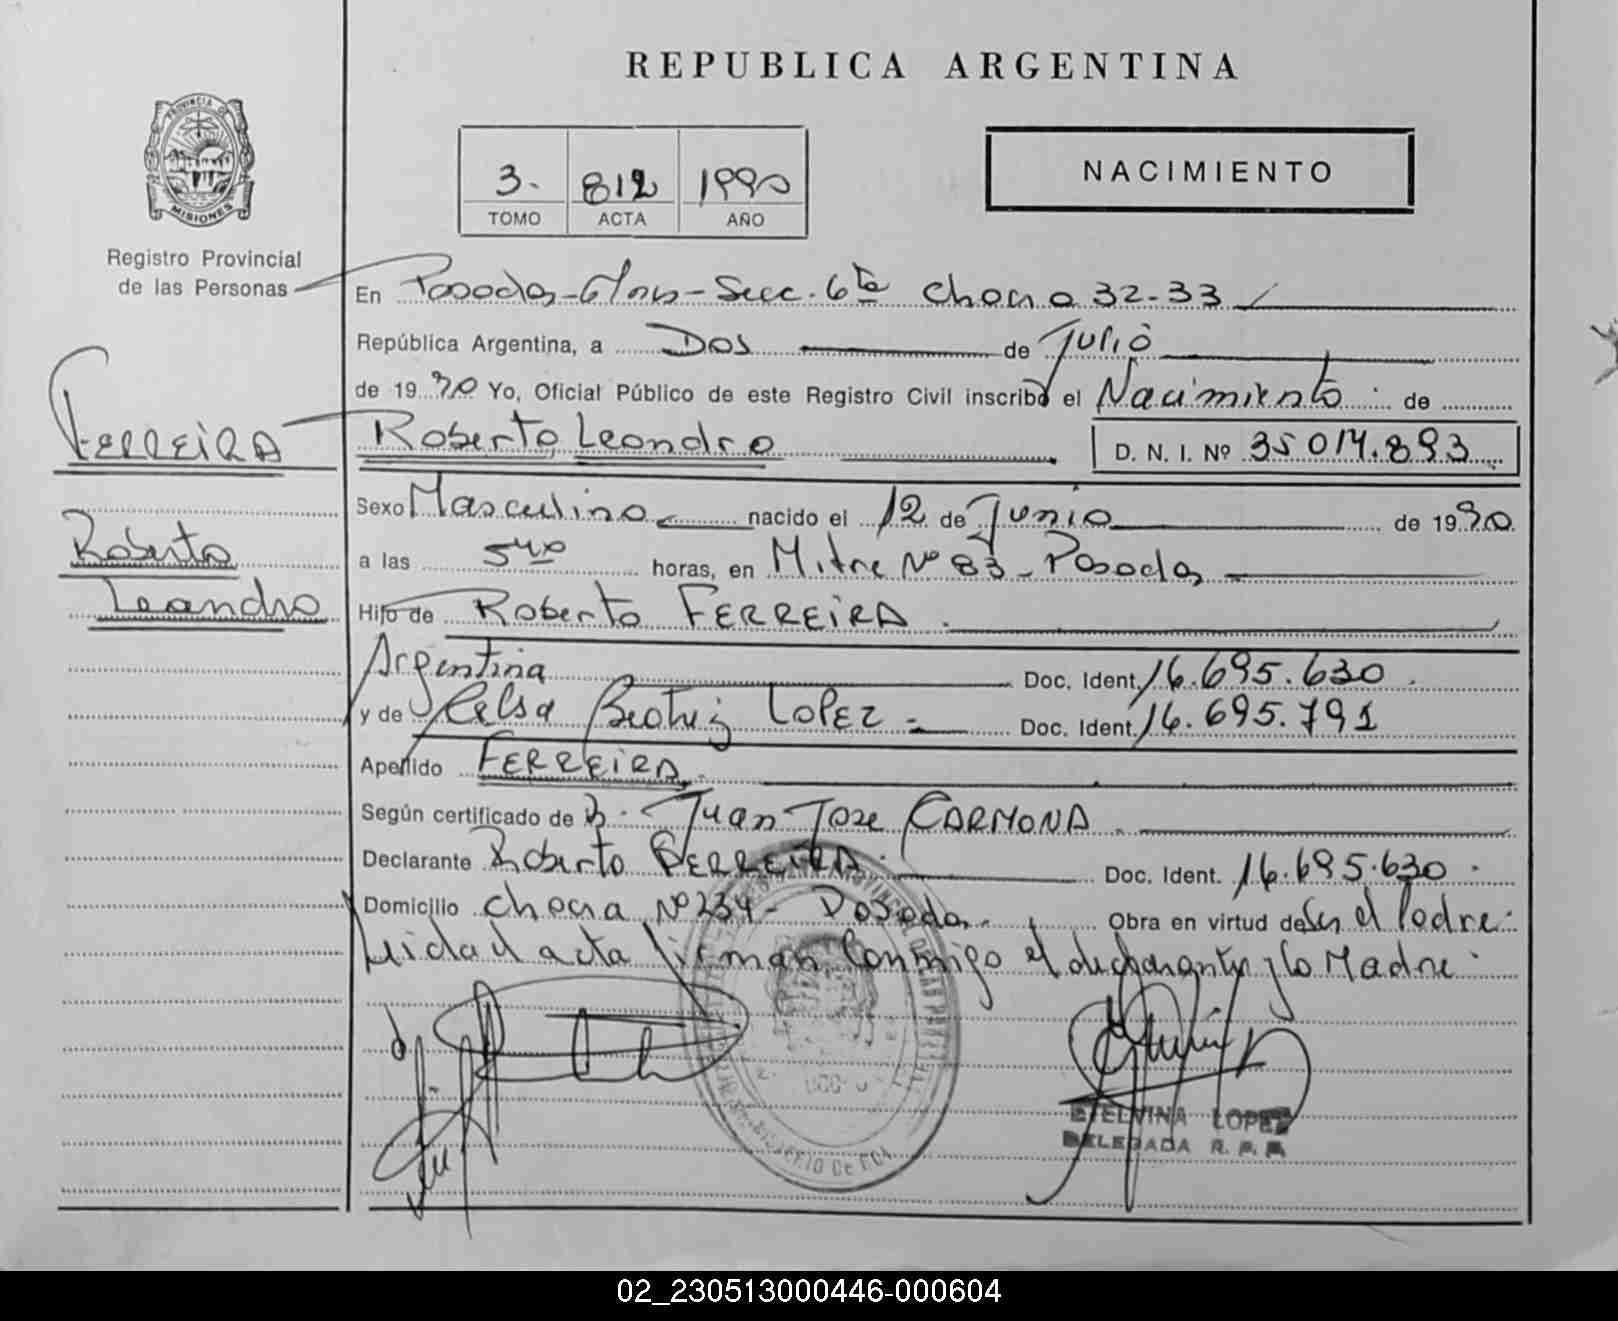 REPUBLICA ARGENTINA
PROVINCIA DE
MISIONES
Registro Provincial
de las Personas
3. 812 1990
TOMO ACTA AÑO
NACIMIENTO
FERREIRA
Roberto
Leandro
En Posadas-Mnes-Secc. 6ta chacra 32-33
República Argentina, a Dos de Julio
de 1990 Yo, Oficial Público de este Registro Civil inscribo el Nacimiento de
Roberto Leandro D. N. I. Nº 35 014.893
Sexo Masculino nacido el 12 de Junio de 1990
a las 5 40 horas, en Mitre Nº 83 - Posadas
Hijo de Roberto FERREIRA.
Argentina Doc. Ident. 16.695.630.
y de Celsa Beatriz LOPEZ Doc. Ident. 16.695.791
Apellido FERREIRA.
Según certificado de Juan Jose CARMONA.
Declarante Roberto FERREIRA. Doc. Ident. 16.695.630.
Domicilio chacra Nº 234 - Posadas. Obra en virtud de Ser el Padre.
Leida el acta firman conmigo el declarante y la Madre.
ETELVINA LOPEZ
DELEGADA R. P. P.
02_230513000446-000604